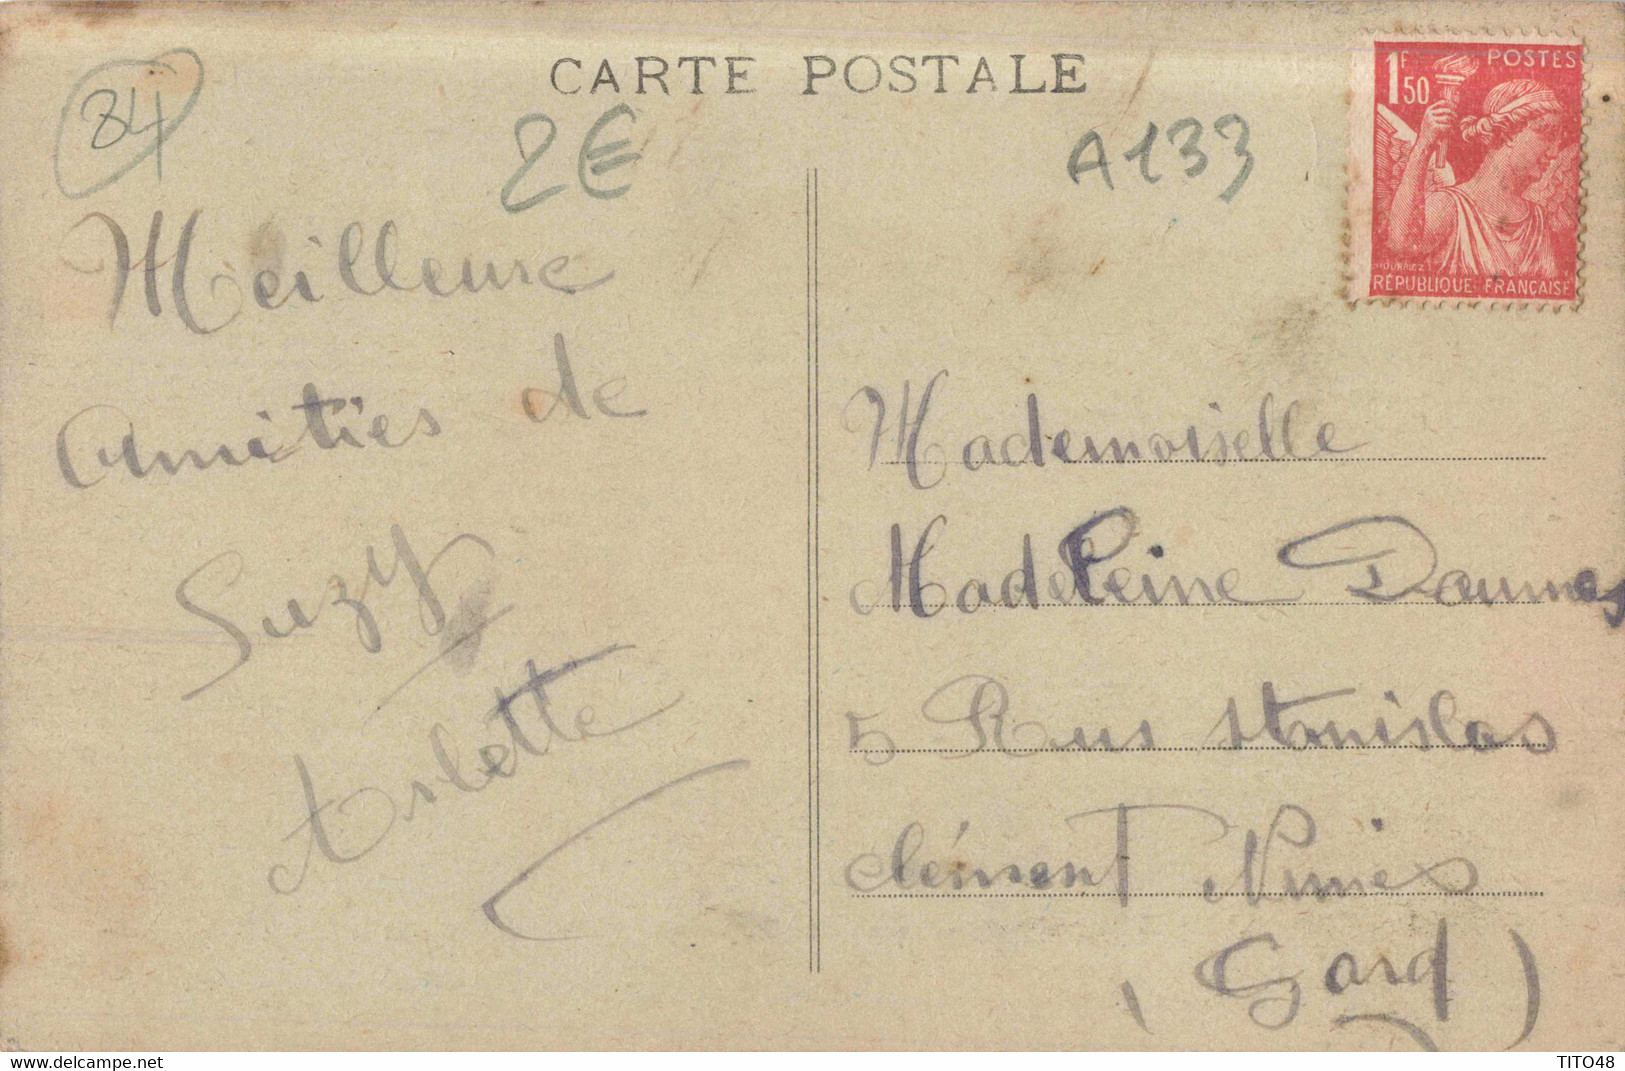 CARTE POSTALE
84
2€
A133
1F50 POSTES
RÉPUBLIQUE FRANÇAISE
Meilleure
Amitiés de
Suzy
Arlette
Mademoiselle
Madeleine Daumes
5 Rue Stanislas
Clément Nimes
(Gard)
TITO48